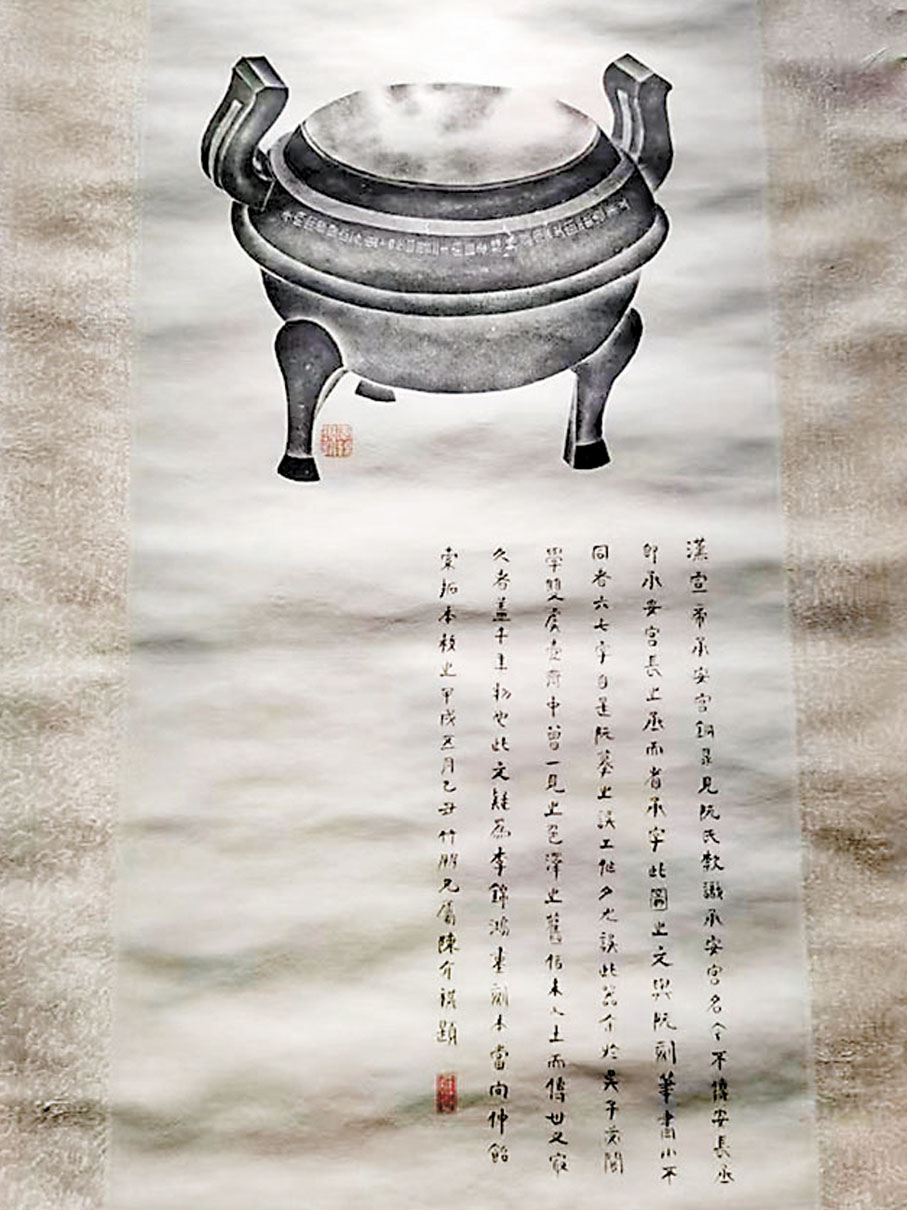 漢宣帝承安宮銅鼎見阮氏款識承安宮名今不傳安長丞
即承安宮長之丞而省承字此圖之文與阮刻筆畫小不
同者六七字自是阮摹之誤工他夕尤誤此器介於吳子苾閣
學雙虞壺齋中曾一見之色澤之舊信未入土而傳世又最
久者蓋千金物也此文雖為李錦鴻重刻本當向仲飴
索拓本校之甲戌五月乙丑竹朋兄屬陳介祺題